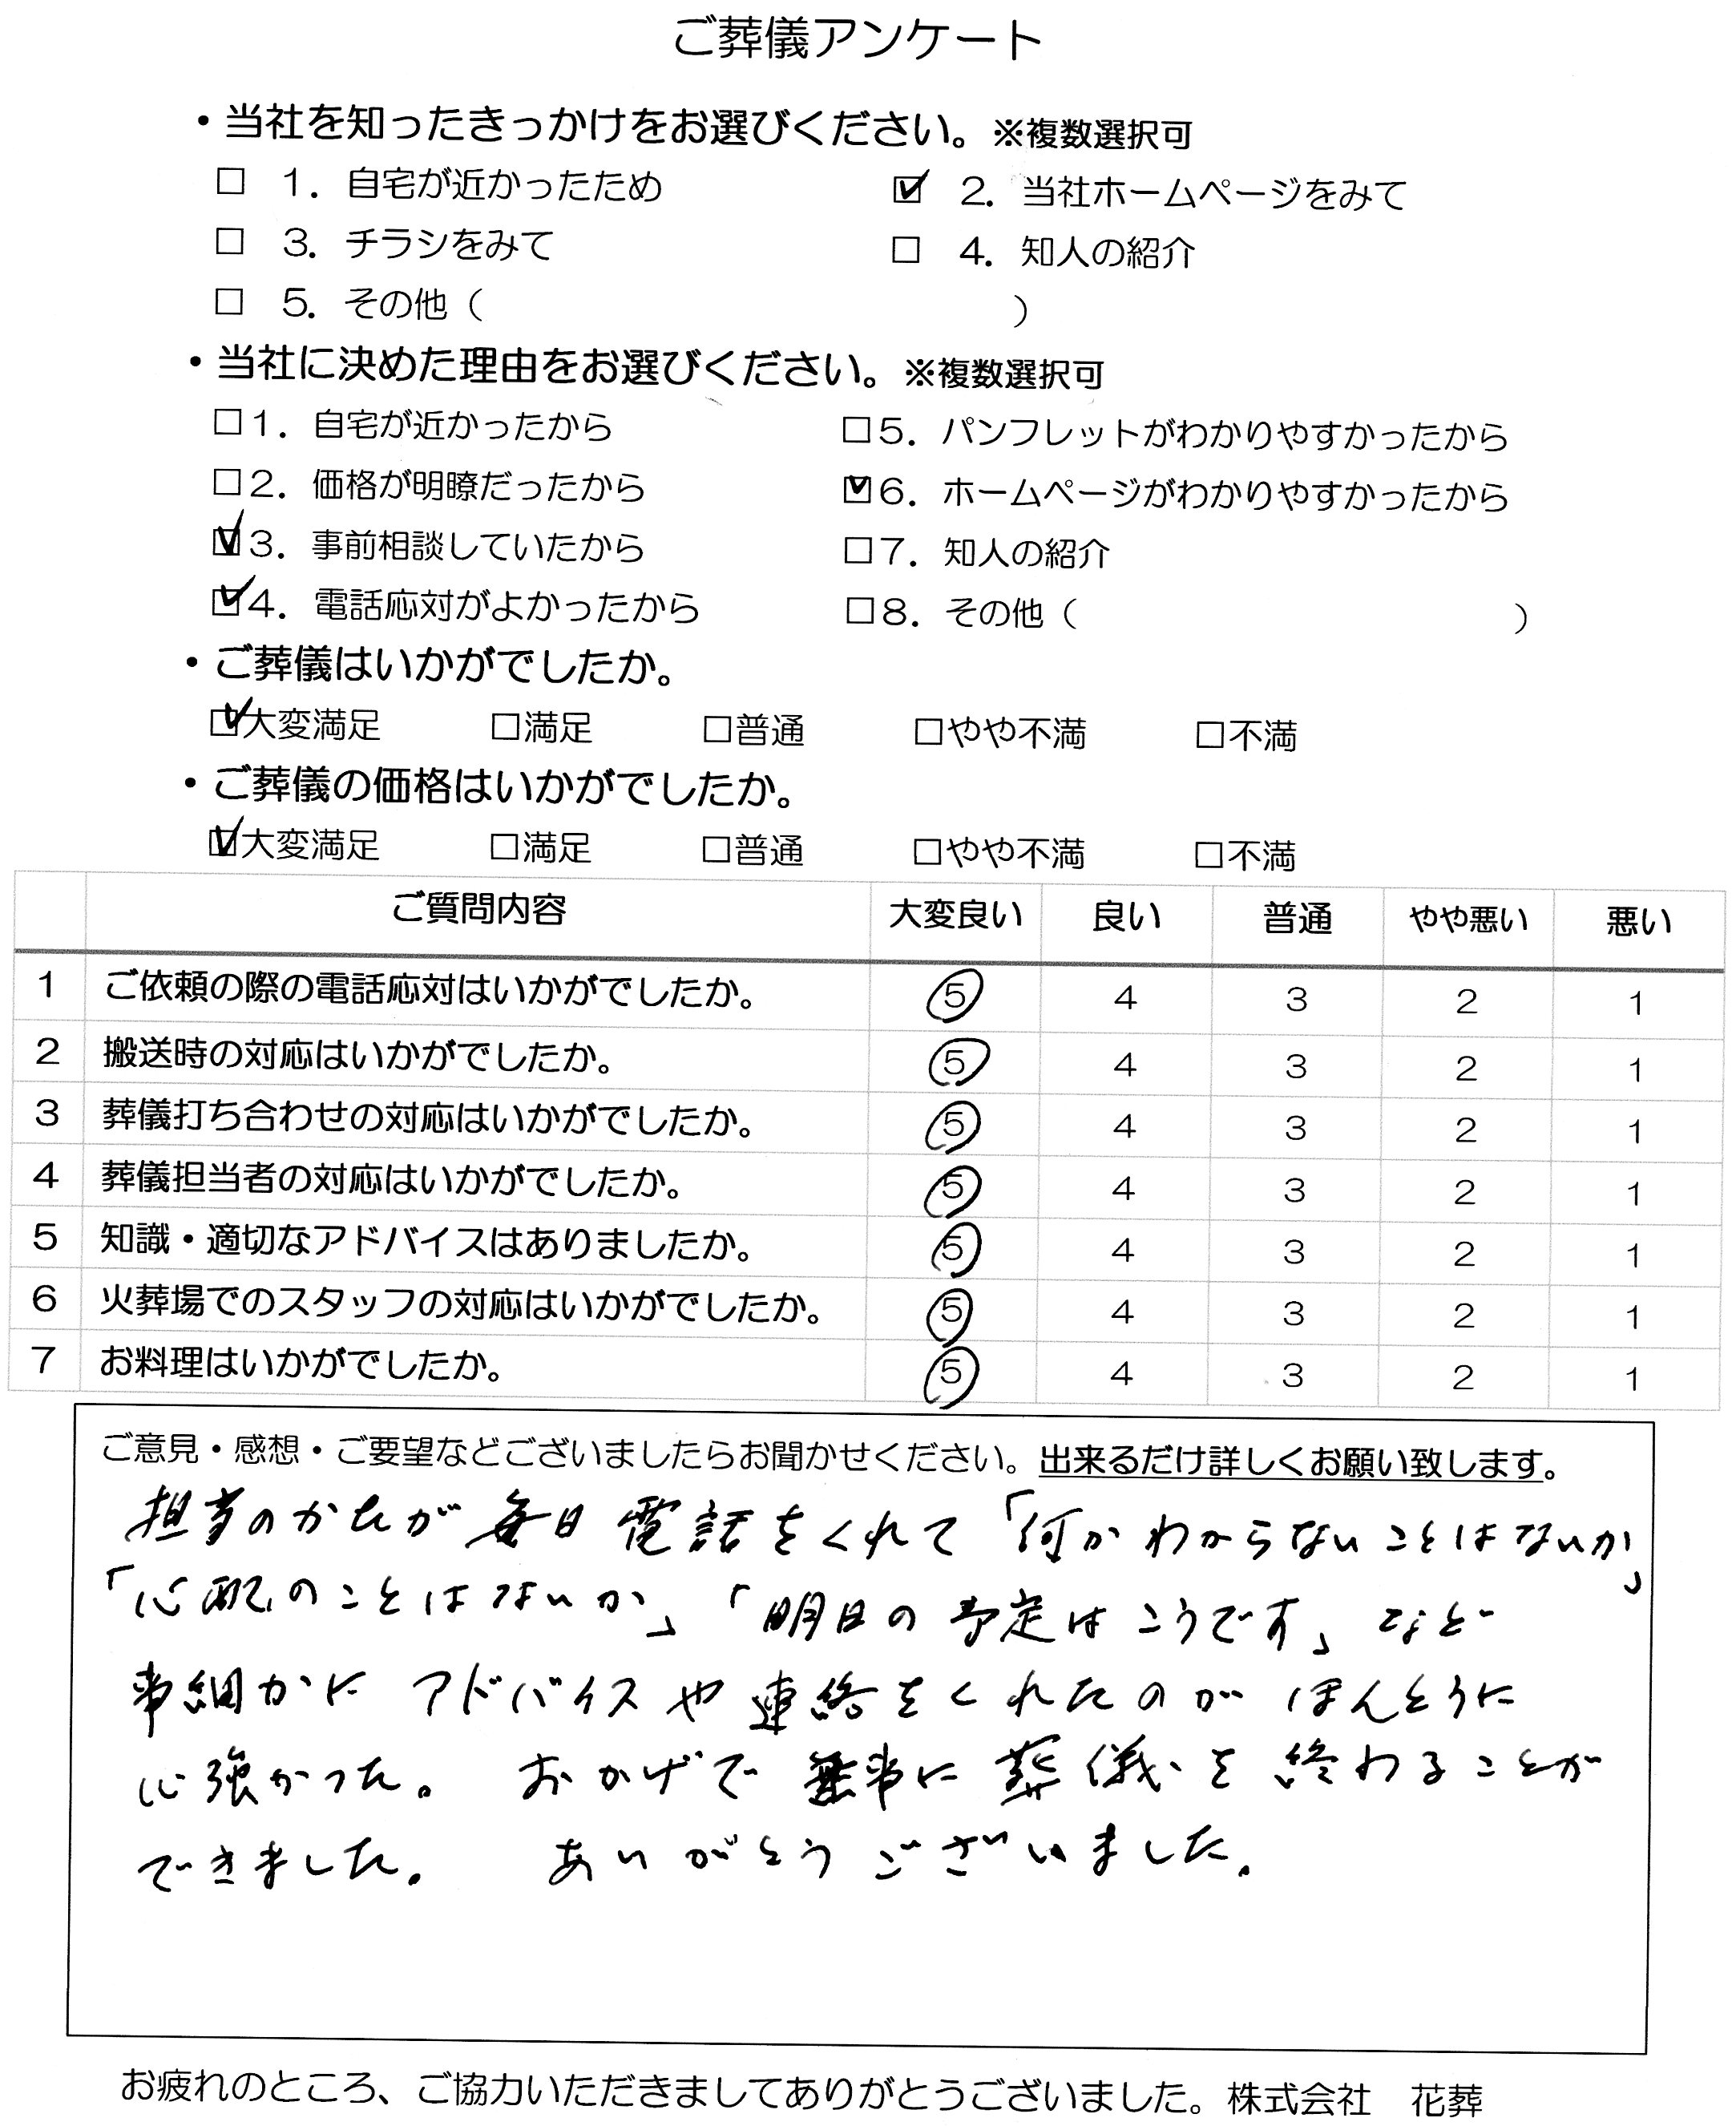 ご葬儀アンケート
・当社を知ったきっかけをお選びください。※複数選択可
□ 1．自宅が近かったため ☑ 2．当社ホームページをみて
□ 3．チラシをみて □ 4．知人の紹介
□ 5．その他（ ）
・当社に決めた理由をお選びください。※複数選択可
□1．自宅が近かったから □5．パンフレットがわかりやすかったから
□2．価格が明瞭だったから ☑6．ホームページがわかりやすかったから
☑3．事前相談していたから □7．知人の紹介
☑4．電話応対がよかったから □8．その他（ ）
・ご葬儀はいかがでしたか。
☑大変満足 □満足 □普通 □やや不満 □不満
・ご葬儀の価格はいかがでしたか。
☑大変満足 □満足 □普通 □やや不満 □不満
ご質問内容 大変良い 良い 普通 やや悪い 悪い
1 ご依頼の際の電話応対はいかがでしたか。 5 4 3 2 1
2 搬送時の対応はいかがでしたか。 5 4 3 2 1
3 葬儀打ち合わせの対応はいかがでしたか。 5 4 3 2 1
4 葬儀担当者の対応はいかがでしたか。 5 4 3 2 1
5 知識・適切なアドバイスはありましたか。 5 4 3 2 1
6 火葬場でのスタッフの対応はいかがでしたか。 5 4 3 2 1
7 お料理はいかがでしたか。 5 4 3 2 1
ご意見・感想・ご要望などございましたらお聞かせください。出来るだけ詳しくお願い致します。
担当のかたが毎日電話をくれて「何かわからないことはないか」
「心配のことはないか」「明日の予定はこうです」など
事細かに アドバイスや連絡をくれたのが ほんとうに
心強かった。 おかげで無事に葬儀を終わることが
できました。 ありがとうございました。
お疲れのところ、ご協力いただきましてありがとうございました。株式会社 花葬